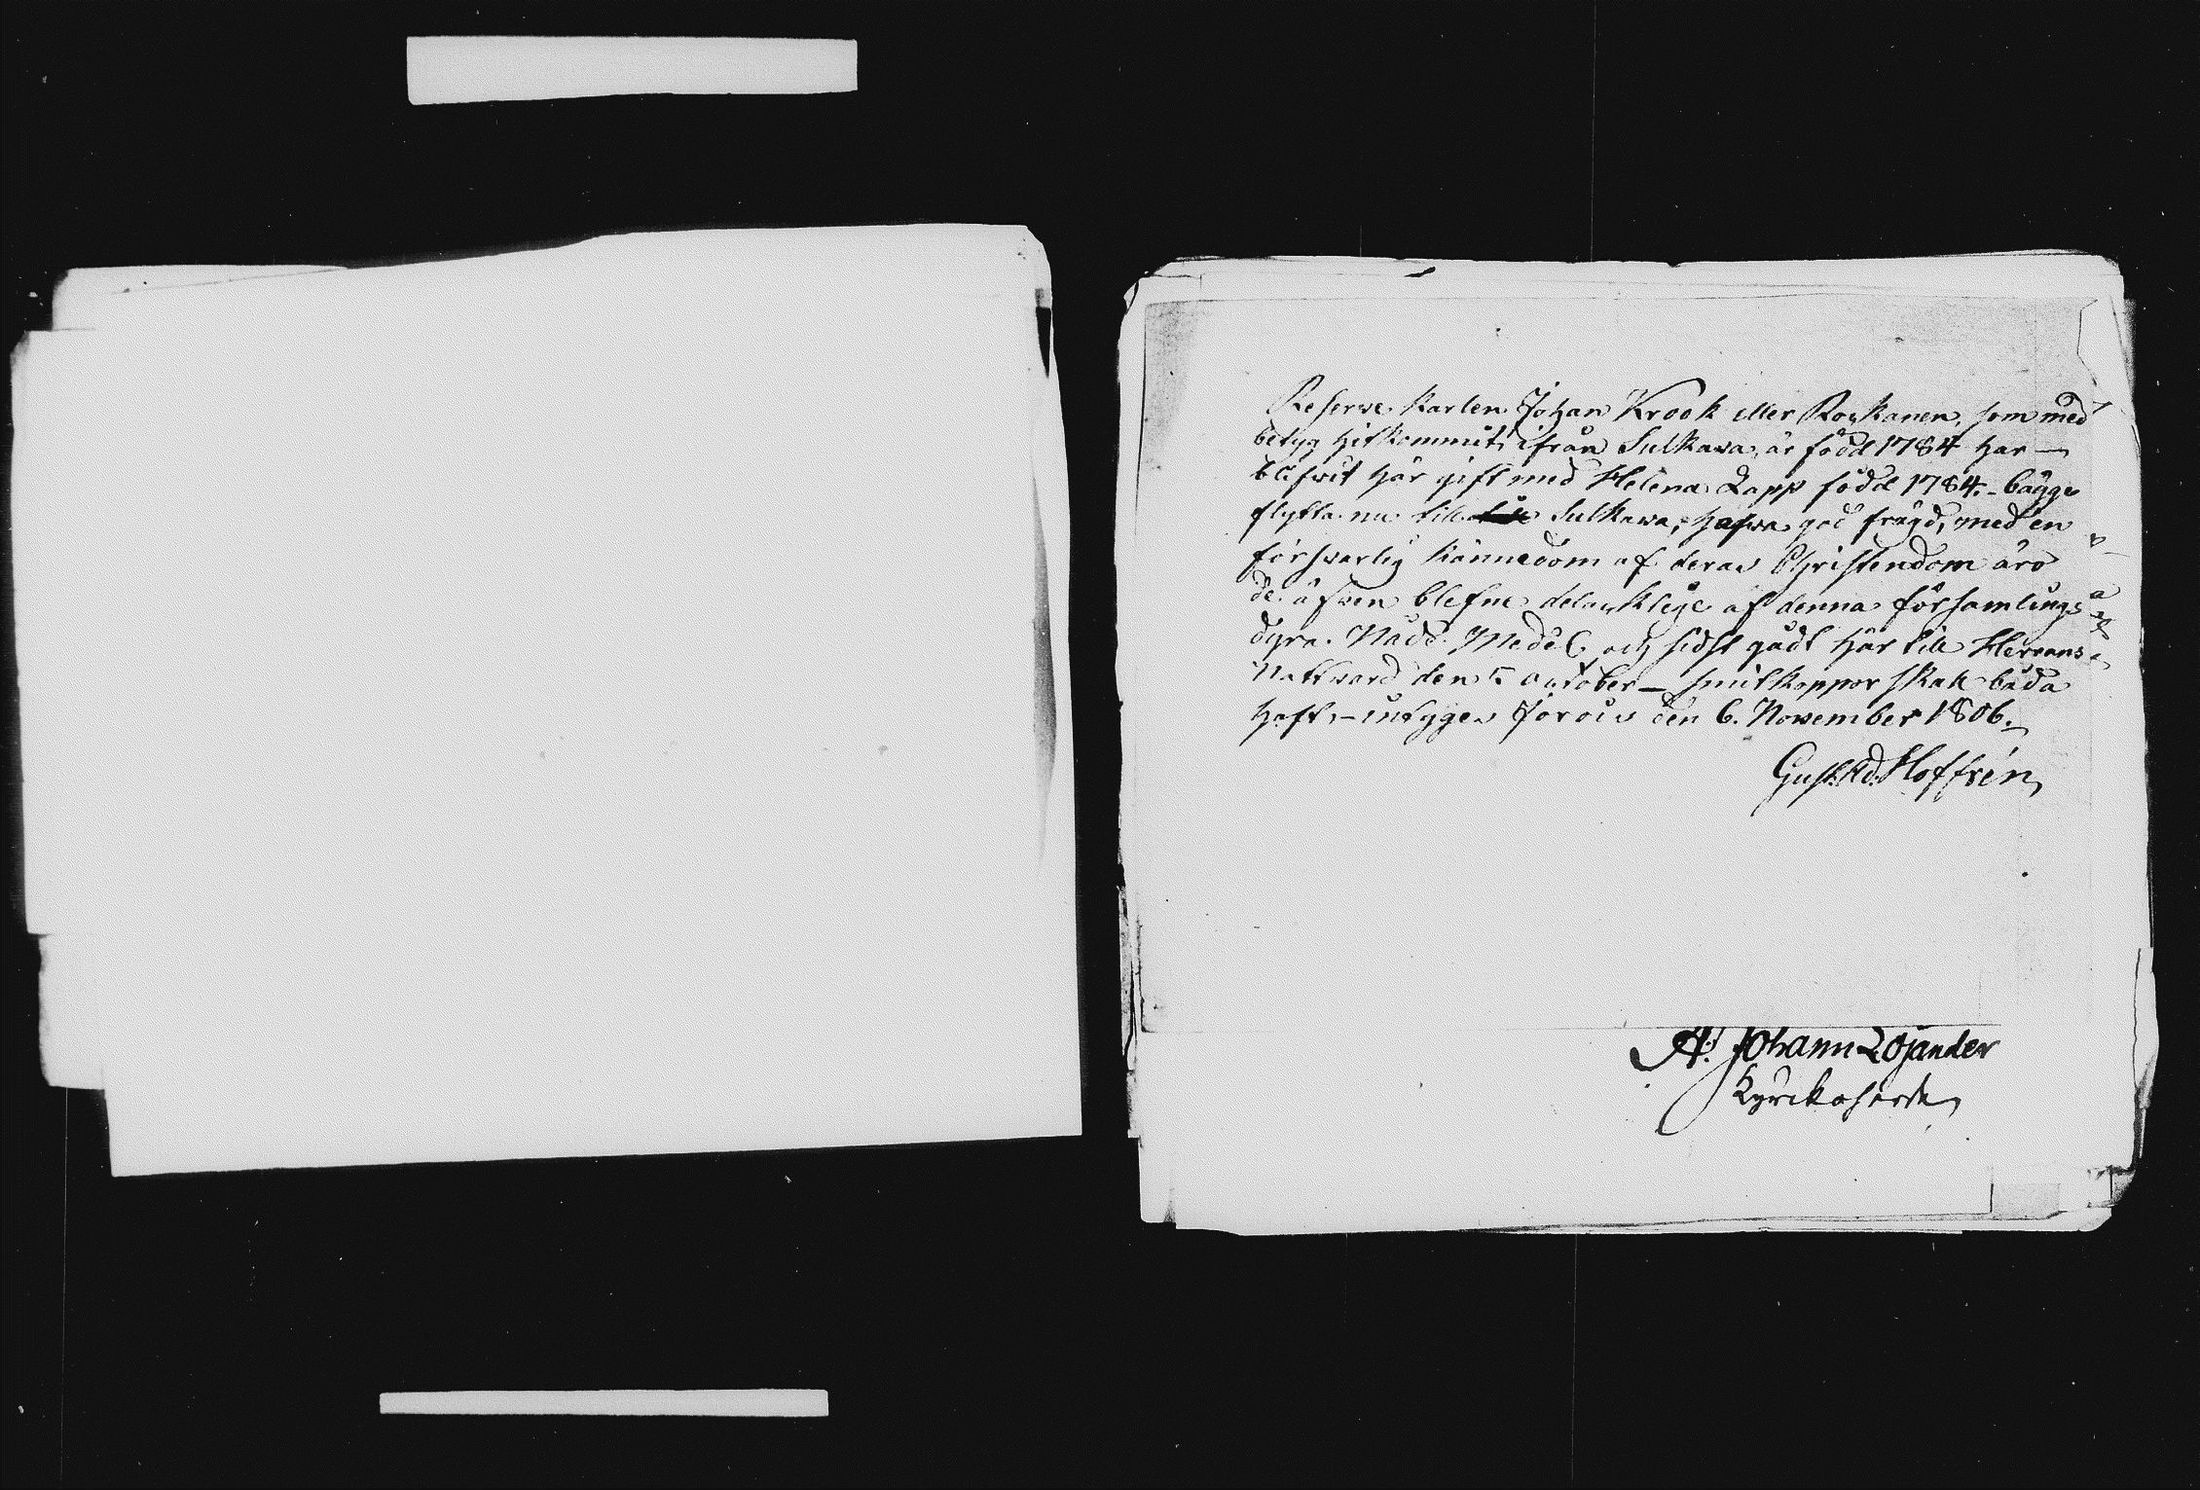 Reserve Karlen Johan Krook eller Roskanen, som med
betyg hitkommit ifrån Sulkawa, är född 1784 har
blifwit här gift med Helena Lapp född 1784. bägge
flytta nu till Sulkawa, hafwa god frägd, med en
förswarlig kännedom af deras Christendom äro
de äfwen blefne delacktige af denna församlings
dyra Nåde Medel och sidst gådt här till Herrans
Nattward den 5 october – smitkoppor skall båda
haft, – intygar Jorois den 6. November 1806.
Gust. Ad. Hoffrén
A. Johann Lojander
Kyrckoherde